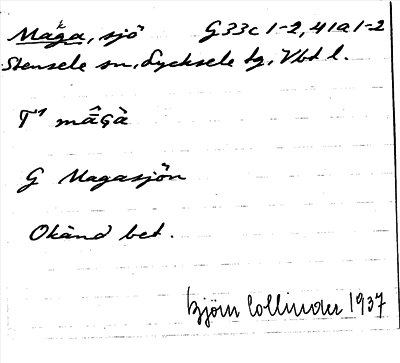 Maga, sjö G33c1-2, 41a1-2
k
Stensele sn, Lycksele tg, Vbt l.
T¹ mā̂Gà
G Magasjön
Okänd bet.
Björn Collinder 1937